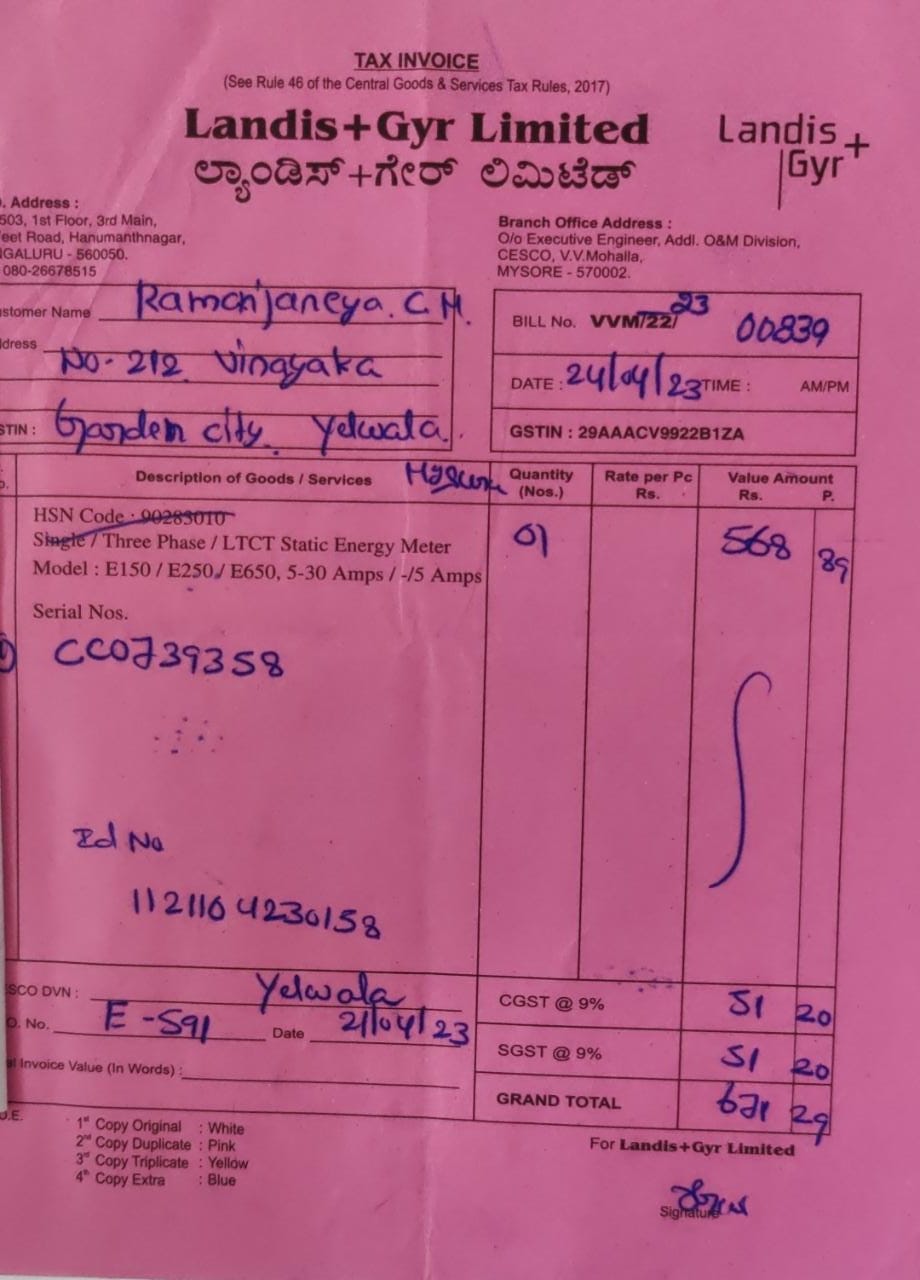 TAX INVOICE
(See Rule 46 of the Central Goods & Services Tax Rules, 2017)
Landis+Gyr Limited
ಲ್ಯಾಂಡಿಸ್+ಗೇರ್ ಲಿಮಿಟೆಡ್
Landis
Gyr+
. Address :
503, 1st Floor, 3rd Main,
eet Road, Hanumanthnagar,
GALURU - 560050.
080-26678515
Branch Office Address :
O/o Executive Engineer, Addl. O&M Division,
CESCO, V.V.Mohalla,
MYSORE - 570002.
stomer Name Ramanjaneya. C.M.
dress No-212 Vinayaka
STIN : Garden city. Yelwala.
BILL No. VVM/22/23 00839
DATE : 24/04/23 TIME : AM/PM
GSTIN : 29AAACV9922B1ZA
Description of Goods / Services
Quantity (Nos.)
Rate per Pc Rs.
Value Amount Rs. P.
HSN Code : 90283010
Single / Three Phase / LTCT Static Energy Meter 01 568 89
Model : E150 / E250 / E650, 5-30 Amps / -/5 Amps
Serial Nos.
CC0739358
Id No
1121104230158
SCO DVN : Yelwala
O. No. E-591 Date 21/04/23
l Invoice Value (In Words) :
CGST @ 9% 51 20
SGST @ 9% 51 20
GRAND TOTAL 671 29
O.E.
1st Copy Original : White
2nd Copy Duplicate : Pink
3rd Copy Triplicate : Yellow
4th Copy Extra : Blue
For Landis+Gyr Limited
Signature